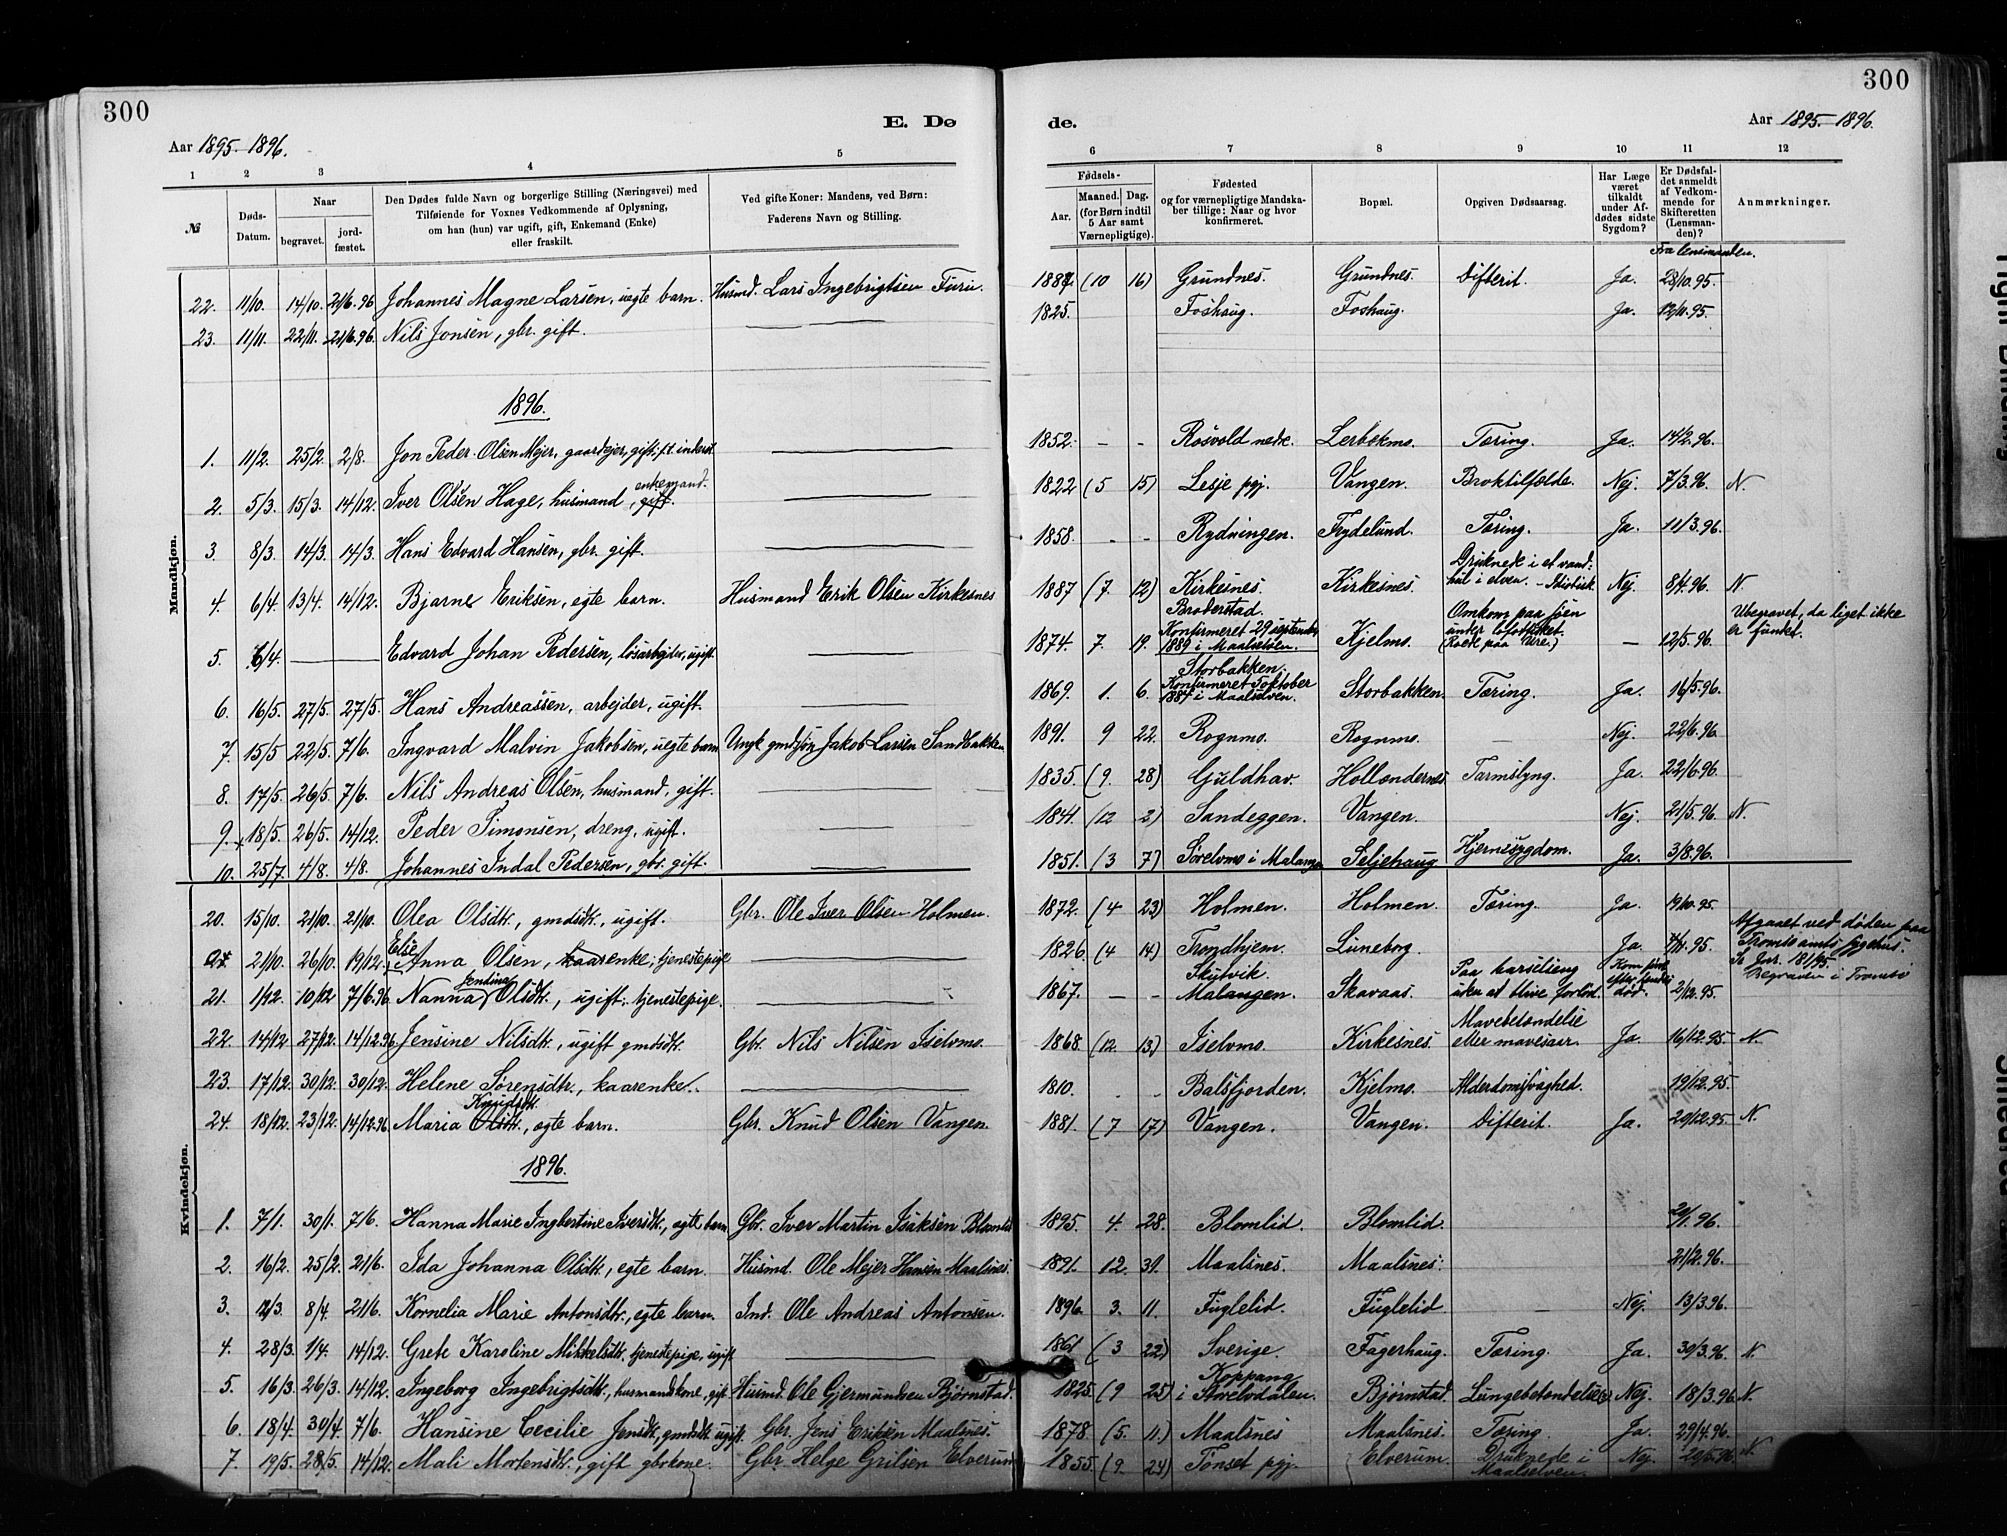 300
300
E. Dø
de.
Aar 1895-1896.
Aar 1895-1896.
1 2 3 4 5 6 7 8 9 10 11 12
№
Døds-Datum.
Naar
begravet.
jord-fæstet.
Den Dødes fulde Navn og borgerlige Stilling (Næringsvei) med
Tilføiende for Voxnes Vedkommende af Oplysning,
om han (hun) var ugift, gift, Enkemand (Enke)
eller fraskilt.
Ved gifte Koner: Mandens, ved Børn:
Faderens Navn og Stilling.
Fødsels-
Aar.
Maaned. Dag.
(for Børn indtil
5 Aar samt
Værnepligtige).
Fødested
og for værnepligtige Mandska-
ber tillige: Naar og hvor
konfirmeret.
Bopæl.
Opgiven Dødsaarsag.
Har Læge
været
tilkaldt
under Af-
dødes sidste
Sygdom?
Er Dødsfal-
det anmeldt
af Vedkom-
mende for
Skifteretten
(Lensman-
den)?
Anmærkninger.
Fra lensmanden.
Mandkjøn.
22. 11/10. 14/10. 21/6.96 Johannes Magne Larsen, uægte barn. Husmd. Lars Ingebrigtsen Furu. 1887. (10 16) Grundnes. Grundnes. Difterit. Ja. 28/10.95.
23. 11/11. 22/11. 21/6.96. Nils Jonsen, gbr. gift. 1825. Foshaug. Foshaug. Ja. 12/11.95.
1896.
1. 11/2. 25/2. 2/8. Jon Peder Olsen Mejer, gaardejer, gift, f.t. inderst. 1852. - - Rosvold nedre. Lerbekmo. Tæring. Ja. 14/2.96.
2. 5/3. 15/3. 14/12. Iver Olsen Hage, husmand, gift. enkemand. 1822 (5 15) Lesje pgj. Vangen. Broktilfælde. Nej. 7/3.96. N.
3 8/3. 14/3. 14/3. Hans Edvard Hansen, gbr. gift. 1858. - - Rydningen. Frydelund. Tæring. Ja. 11/3.96.
4. 6/4. 13/4. 14/12. Bjarne Eriksen, egte barn. Husmand Erik Olsen Kirkesnes 1887 (7. 12) Kirkesnes. Kirkesnes. Druknede i et vand-hul i elven. - Nej. 8/4.96. N.
5. 6/4. Edvard Johan Pedersen, løsarbejder, ugift. 1874. 7. 19. Broderstad. Konfirmeret 29 september 1889 i Maalselven. Kjelmo. Omkom paa sjøen under lofotfisket. - 12/5.96. Ubegravet, da liget ikke er fundet.
6. 16/5. 27/5. 27/5. Hans Andreassen, arbejder, ugift. 1869. 1. 6. Storbakken. Konfirmeret 5 oktober 1884 i Maalselven. Storbakken. Tæring. Ja. 16/5.96.
7. 15/5 22/5. 7/6. Ingvard Malvin Jakobsen, uegte barn Ungk. gmdssøn Jakob Larsen Sandbakken 1891. 9 22. Rognmo. Rognmo. Nej. 22/6.96.
8. 17/5. 26/5. 7/6. Nils Andreas Olsen, husmand, gift. 1835 (9. 28) Guldhav. Hollændernes. Tarmslyng. Ja. 22/6.96.
9. 18/5. 26/5. 14/12. Peder Simonsen, dreng, ugift. 1841. (12 2) Sandeggen. Vangen. Nej. 21/5.96. N.
10. 25/7. 4/8. 4/8. Johannes Indal Pedersen, gbr. gift. 1851. (3 7) Sørelvmo i Malangen Seljehaug Hjernesygdom. Ja. 3/8.96.
Kvindekjøn.
20. 15/10. 21/10. 21/10. Olea Olsdtr., gmdsdtr., ugift. Gbr. Ole Iver Olsen Holmen. 1872. (4 23) Holmen. Holmen. Tæring. Ja. 19/10.95.
21/10. 26/10. 19/12. Else Anna Olsen, kaarenke; tjenestepige 1826. (4 14) Trondhjem. Luneborg. Ja. 4/11.95. Afgaaet ved døden paa Tromsø amts sygehus. Begraven i Tromsø
21. 1/12. 10/12 7/6.96. Nanna Jendine Olsdtr., ugift; tjenestepige. 1867. - - Skutvik. Malangen. Skavaas. Paa barselseng uden at blive forløst. død. 2/12.95.
22. 14/12. 27/12. 14/12.96 Jensine Nilsdtr., ugift gmdsdtr. Gbr. Nils Nilsen Iselvmo. 1868. (12. 13) Iselvmo. Kirkesnes. Mavebetændelse eller mavesaar. Ja. 16/12.95. N.
23. 17/12. 30/12. 30/12. Helene Sørensdtr., kaarenke. 1810. - - Balsfjorden. Kjelmo. Alderdomssvaghed. 19/12.95
24. 18/12. 23/12. 14/12.96. Maria Olsdtr. Knudsdtr., egte barn. Gbr. Knud Olsen Vangen. 1881. (7 17) Vangen. Vangen. Difterit. Ja. 20/12.95. N.
1896.
1. 7/1. 30/1. 7/6. Hanna Marie Ingbertine Iversdtr., egte barn Gbr. Iver Martin Isaksen Blomlid 1895. 4. 28. Blomlid. Blomlid. 21/1.96.
2. 16/2. 25/2. 21/6. Ida Johanna Olsdtr., egte barn. Husmd. Ole Mejer Hansen Maalsnes. 1891. 12. 31. Maalsnes. Maalsnes. 21/2.96.
3. 12/3. 8/4. 21/6. Kornelia Marie Antonsdtr., egte barn. Ind. Ole Andreas Antonsen. 1896. 3. 11. Fuglelid. Fuglelid. Nej. 13/3.96.
4. 28/3. 1/4. 14/12. Grete Karoline Mikkelsdtr. tjenestepige, ugift 1861 (3 22) Sverige. Fagerhaug. Tæring. Ja. 30/3.96. N.
5. 16/3. 26/3. 14/12. Ingeborg Ingebrigtsdtr., husmandskone, gift Husmd. Ole Gjermundsen Bjørnstad. 1825. (9 25) Koppang i Storelvdalen. Bjørnstad. Lungebetændelse Nej. 18/3.96 N.
6. 18/4. 30/4. 7/6. Hansine Cecilie Jensdtr., gmdsdtr. ugift. Gbr. Jens Eriksen Maalsnes. 1878 (5. 11.) Maalsnes Maalsnes. Tæring. Ja. 29/4.96.
7. 19/5. 28/5. 14/12. Mali Mortensdtr., gift gbrkone. Gbr. Helge Grilsen Elverum 1855. (9. 24) Tønset pgj. Elverum. Druknede i Maalselven. Nej. 20/5.96. N.